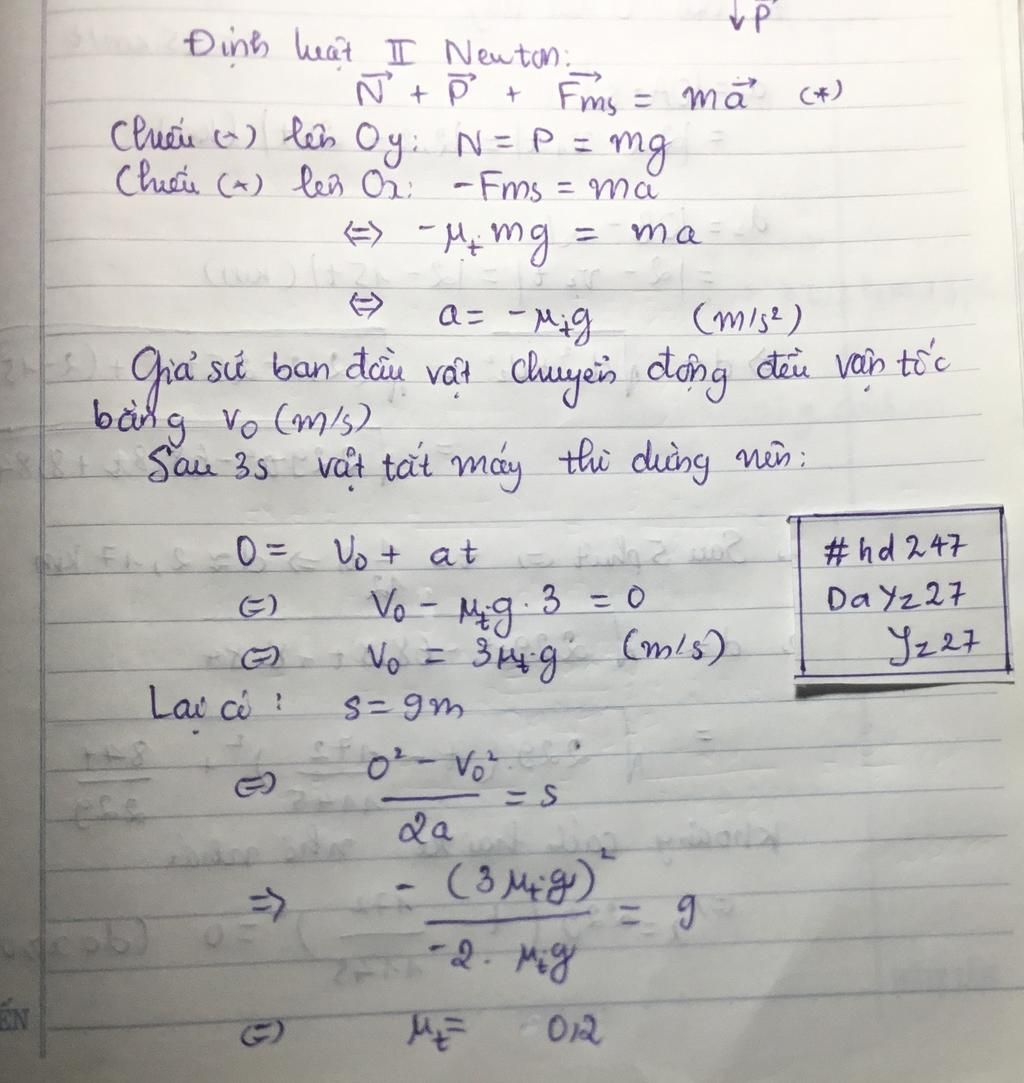 ↓ P
Định luật II Newton:
N⃗ + P⃗ + F⃗ms = ma⃗ (*)
Chiếu (*) lên Oy: N = P = mg
Chiếu (*) lên Ox: -Fms = ma
⇔ -μₜ mg = ma
⇔ a = -μₜg (m/s²)
Giả sử ban đầu vật chuyển động đều vận tốc
bằng v₀ (m/s)
Sau 3s vật tắt máy thì dừng nên:
0 = v₀ + at
⇔ v₀ - μₜg · 3 = 0
⇔ v₀ = 3μₜ·g (m/s)
#hd247
DaYz27
Yz27
Lại có : s = 9m
⇔ (0² - v₀²)/(2a) = s
⇒ (-(3μₜ·g)²)/(-2·μₜg) = 9
⇔ μₜ = 0,2